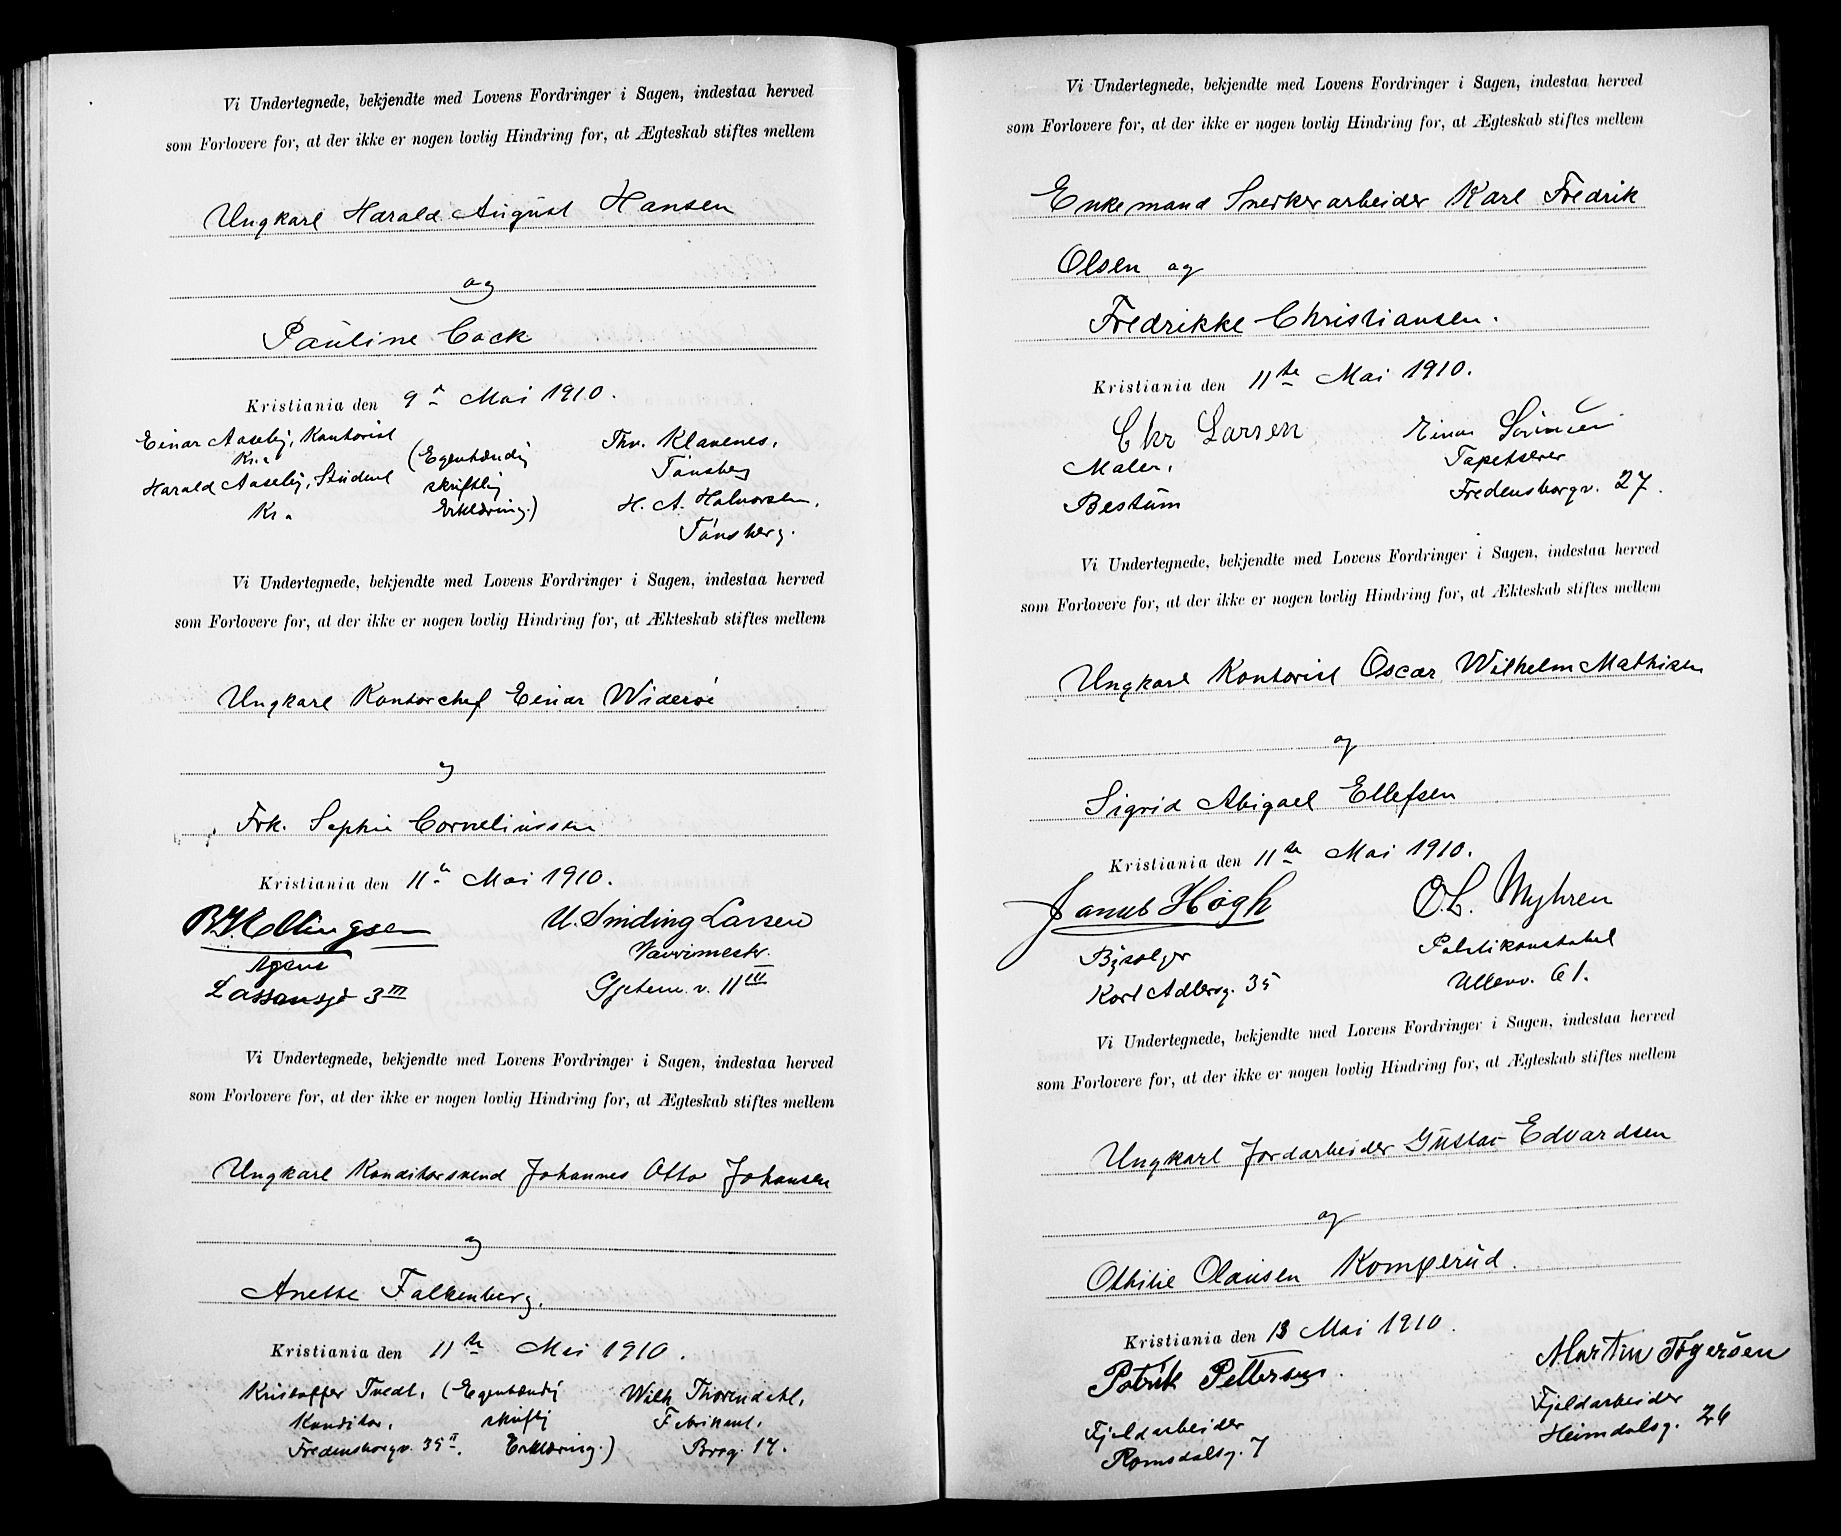 Vi Undertegnede, bekjendte med Lovens Fordringer i Sagen, indestaa herved
som Forlovere for, at der ikke er nogen lovlig Hindring for, at Ægteskab stiftes mellem
Ungkarl Harald August Hansen
og
Pauline Cock
Kristiania den 9de Mai 1910.
Einar Aaseby, Kontorist
Kr.a
Harald Aaseby, Student
Kr.a
(Egenhændig
skriftlig
Erklæring.)
Thv. Klavenes,
Tönsberg
H. A. Halvorsen,
Tönsberg.
Vi Undertegnede, bekjendte med Lovens Fordringer i Sagen, indestaa herved
som Forlovere for, at der ikke er nogen lovlig Hindring for, at Ækteskab stiftes mellem
Ungkarl Kontorchef Einar Wideröe
og
Frk. Sophie Corneliussen
Kristiania den 11te Mai 1910.
Ellingsen
Agent
Lassonsgd 3 III
U. Sinding Larsen
Gjetem.v. 11 III
Vi Undertegnede, bekjendte med Lovens Fordringer i Sagen, indestaa herved
som Forlovere for, at der ikke er nogen lovlig Hindring for, at Ægteskab stiftes mellem
Ungkarl Konditorsvend Johannes Otto Johansen
og
Anette Falkenberg.
Kristiania den 11te Mai 1910.
Kristoffer Tvedt,
Konditor,
Fredensborgv. 35 II.
(Egenhændig
skriftlig
Erklæring.)
Wilh. Thorendahl,
Fabrikant,
Brog. 17.
Vi Undertegnede, bekjendte med Lovens Fordringer i Sagen, indestaa herved
som Forlovere for, at der ikke er nogen lovlig Hindring for, at Ægteskab stiftes mellem
Enkemand Snerkerarbeider Karl Fredrik
Olsen og
Fredrikke Christiansen.
Kristiania den 11te Mai 1910.
Chr Larsen
Maler,
Bestum
Einar Sörensen
Tapetserer
Fredensborgv. 27.
Vi Undertegnede, bekjendte med Lovens Fordringer i Sagen, indestaa herved
som Forlovere for, at der ikke er nogen lovlig Hindring for, at Ækteskab stiftes mellem
Ungkarl Kontorist Oscar Wilhelm Mathisen
og
Sigrid Abigael Ellefsen
Kristiania den 11te Mai 1910.
Høgh
Bysælger
Karl Adlersg. 35
O. L. Myhren
Politikonstabel
Ullev. 61.
Vi Undertegnede, bekjendte med Lovens Fordringer i Sagen, indestaa herved
som Forlovere for, at der ikke er nogen lovlig Hindring for, at Ægteskab stiftes mellem
Ungkarl Jordarbeider Gustav Edvardsen
og
Othilie Olausen Komperud.
Kristiania den 13 Mai 1910.
Patrik Pettersen.
Fjeldarbeider
Romsdalsg. 7
Martin Togersen
Fjeldarbeider
Heimdalsg. 26